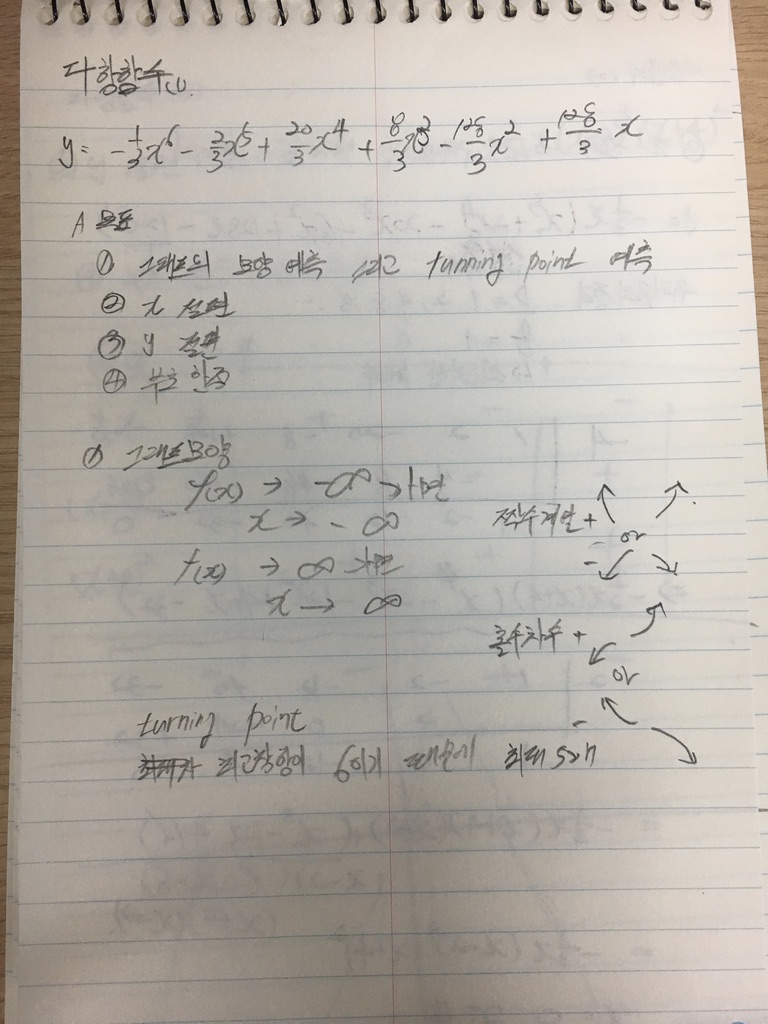 다항함수(1).
y = -1/3x⁶ - 2/3x⁵ + 20/3x⁴ + 8/3x³ - 128/3x² + 128/3 x
A 목표
① 그래프의 모양 예측 그리고 turning point 예측
② x 절편
③ y 절편
④ 부호 한정
① 그래프모양
f(x) → -∞ 가면
x → -∞
짝수계면 +
or
-
f(x) → ∞ 가면
x → ∞
홀수차수 +
or
-
turning point
최고차항이 6이기 때문에 최대 5개